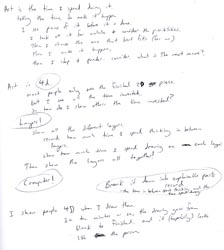 Art is the time I spend doing it,
taking the time to make it happen.
I see pieces of it before it is done.
I look at it for awhile & consider the possibilities.
Then I choose the one that best fits (for me)
Then I make it happen,
then I stop & ponder. consider what is the next move?
Art is 4d
most people only see the finished 2D piece
But I see the time invested.
So how do I show others the time invested?
Layers!
Show all the different layers
record how much time I spend thinking in between
layers.
show how much time I spend drawing on each layer
Then show the layers all together!
Computers!
Break it down into explainable parts
record
the time in between thinking and the
I show people 4D when I draw them
In ten minutes or so, the drawing goes from
blank to finished and it (hopefully) looks
like the person